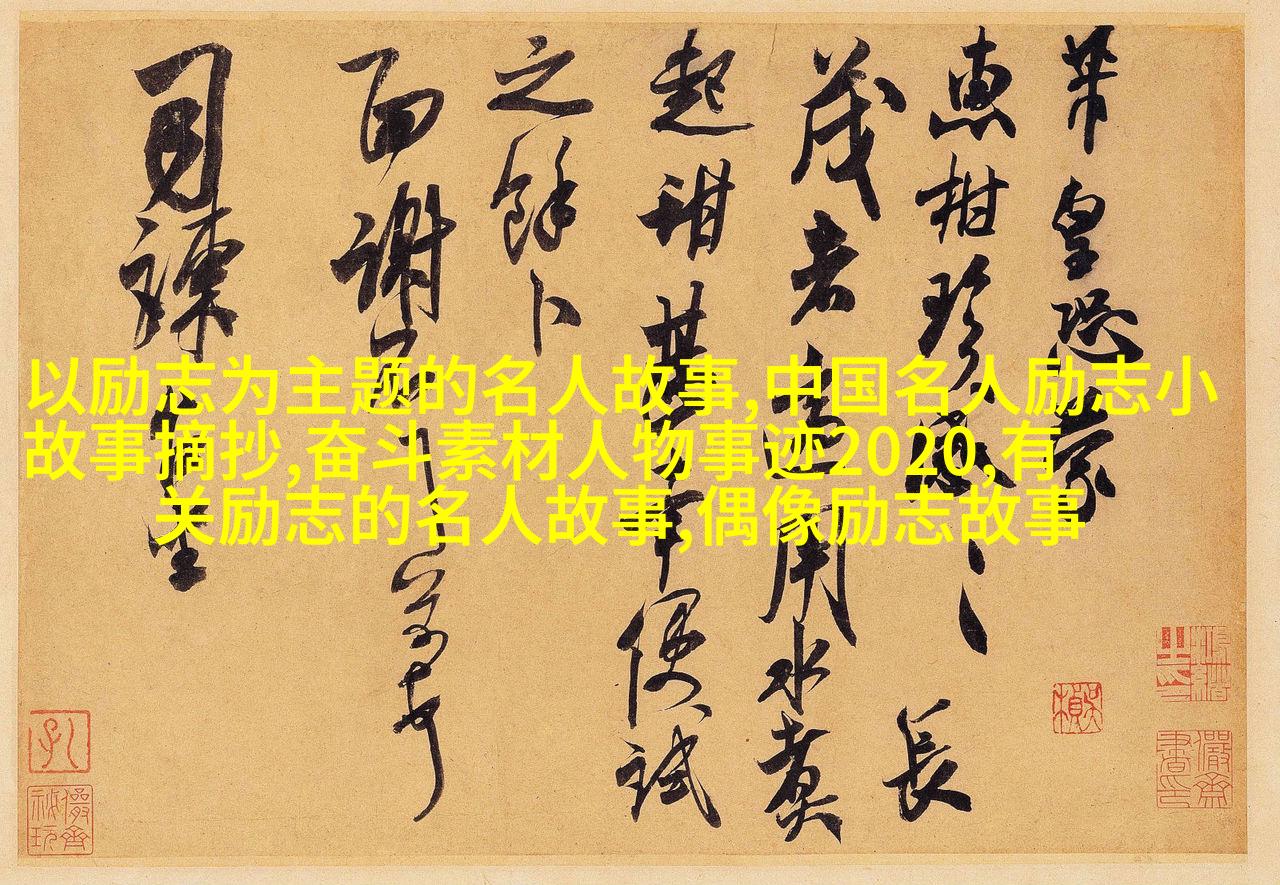 以励志为主题的名人故事,中国名人励志小
故事摘抄,奋斗素材人物事迹2020,有
关励志的名人故事,偶像励志故事
芾皇恐蒙
惠柑珍感〻長
茂者適用水煮
起甜其便試
之餘卜
面謝
司諫台坐